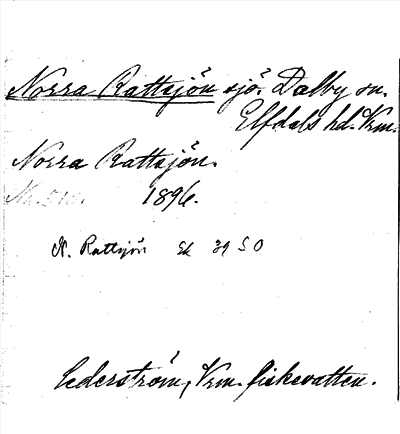 Norra Rattsjön sjö. Dalby sn.
Elfdals hd. Vrm.
Norra Rattsjön.
1896.
N. Rattsjön Ek 39 S O
Cederström, Vrm. fiskevatten.